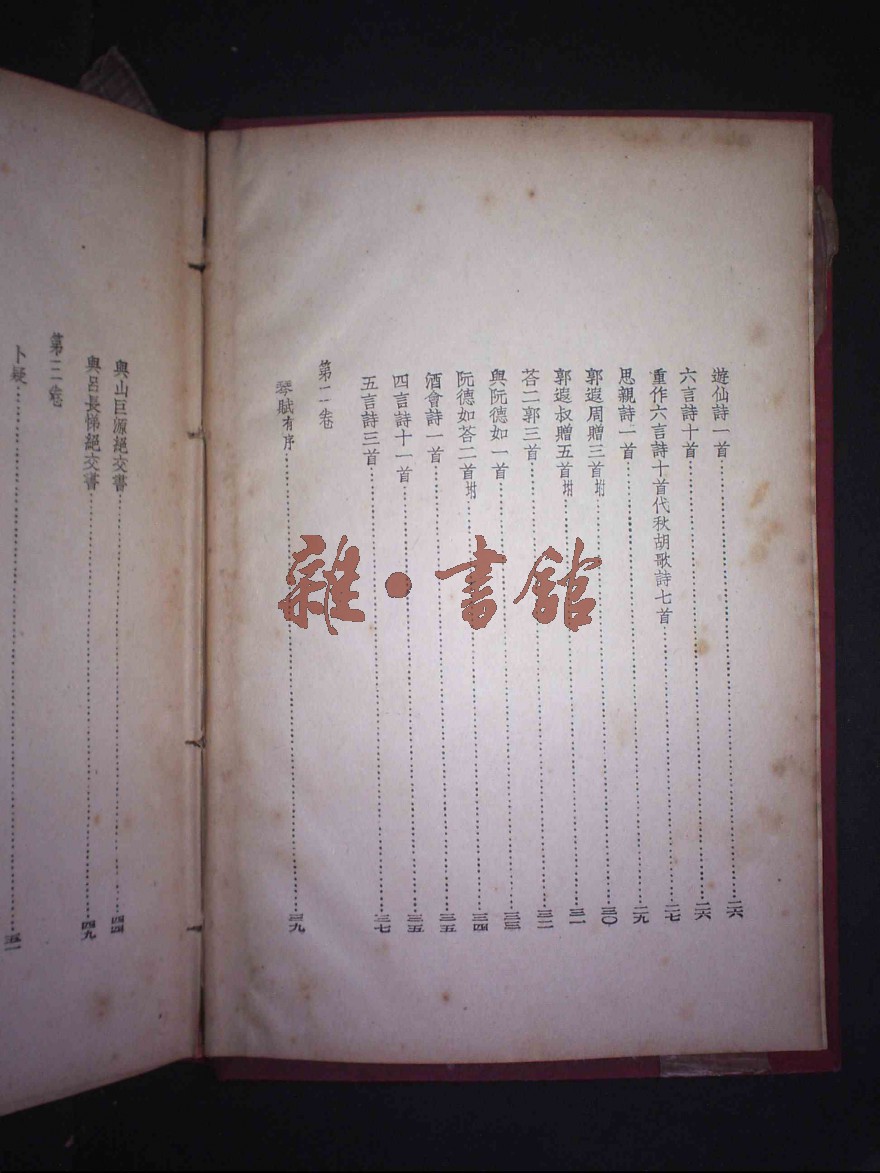 遊仙詩一首 二六
六言詩十首 二六
重作六言詩十首代秋胡歌詩七首 二七
思親詩一首 二九
郭遐周贈三首坿 三〇
郭遐叔贈五首坿 三一
荅二郭三首 三二
與阮德如一首 三三
阮德如荅二首坿 三四
酒會詩一首 三五
四言詩十一首 三五
五言詩三首 三七
第二卷
琴賦有序 三九
與山巨源絕交書 四四
與呂長悌絕交書 四九
第三卷
卜疑 五一
雜·書館